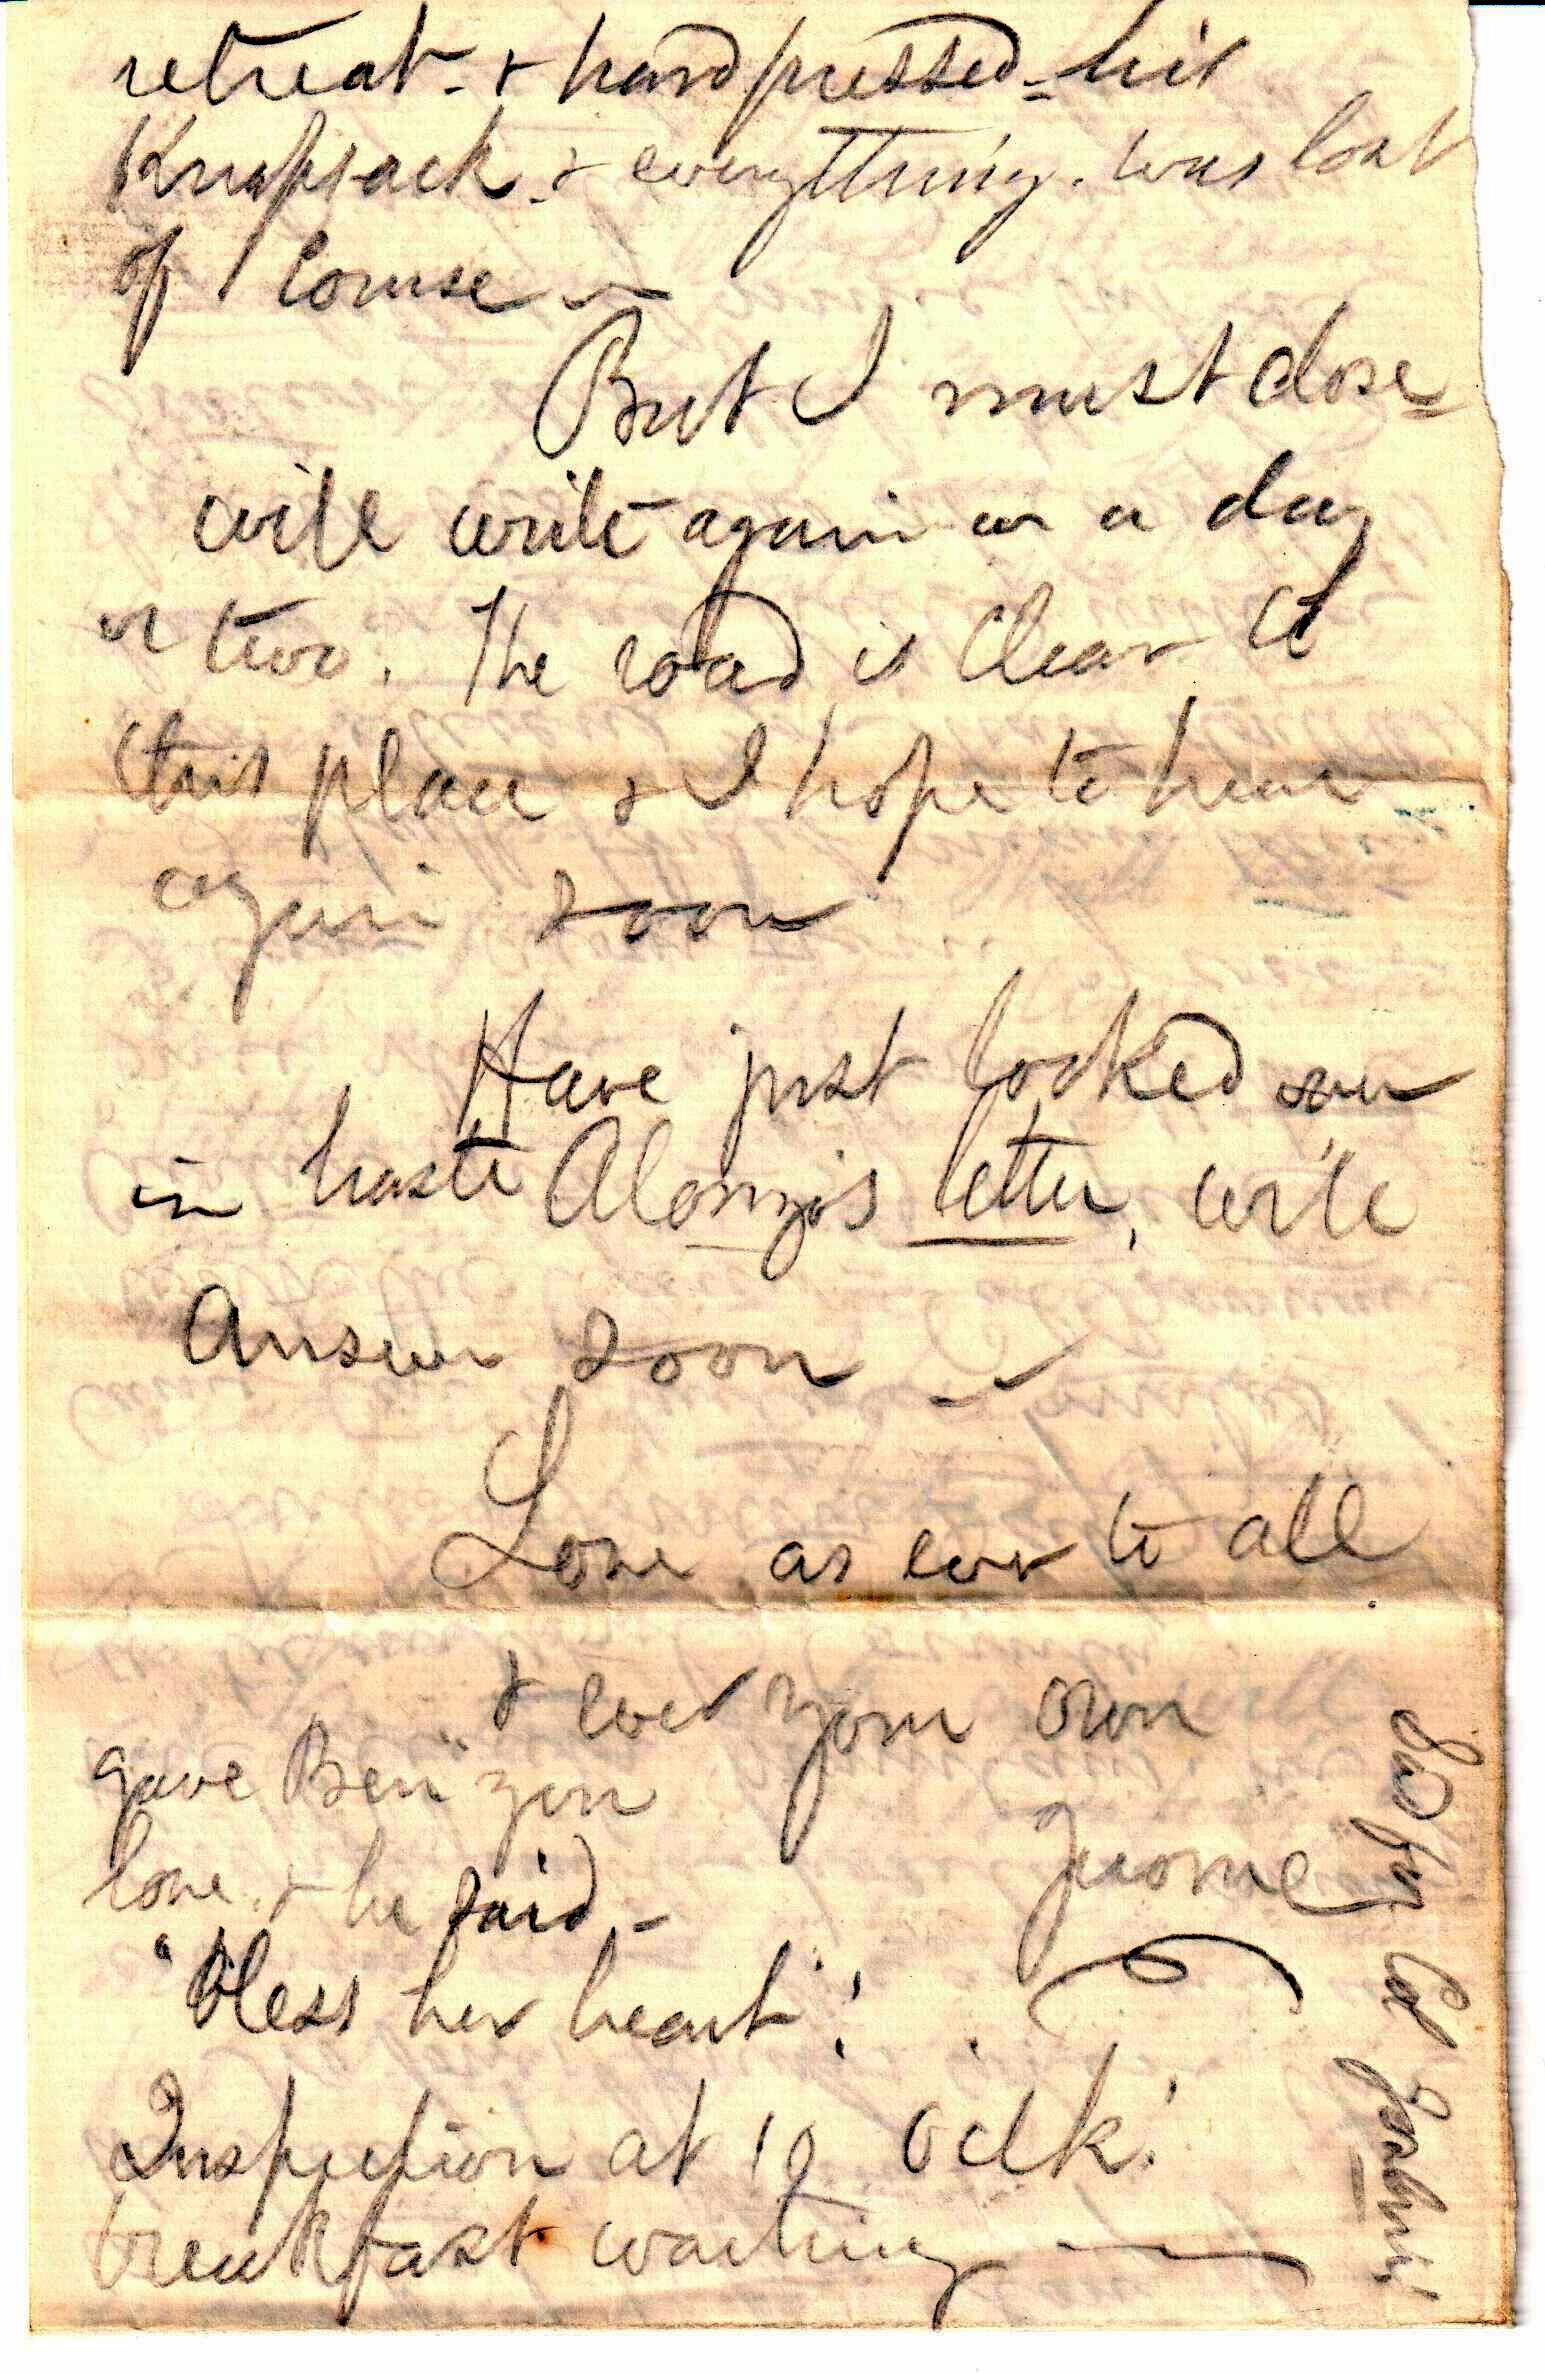 retreat - & hard pressed - his
Knapsack - & everything. was lost
of course -
But I must close -
will write again in a day
or two. The road is clear to
this place & I hope to hear
again soon
Have just looked over
in haste Alonzo's letter, will
answer soon -
Love as ever to all
& ever your own
Jerome
gave "Ben" your
love & he said -
"bless her heart"!
Inspection at 10 oclk!
breakfast waiting
Col